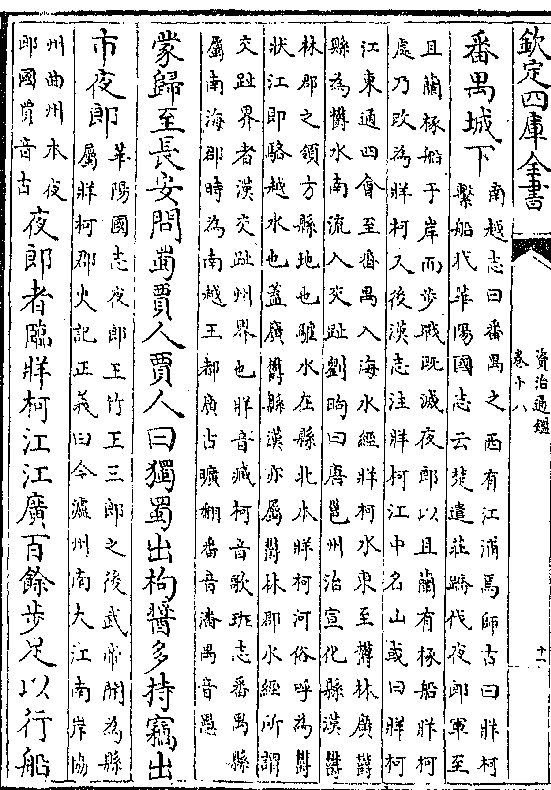 欽定四庫全書
資治通鑑
卷十八
十一
番禺城下
南越志曰番禺之西有江浦焉師古曰牂柯
繫船杙華陽國志云楚遣莊蹻伐夜郎軍至
且蘭椓船于岸而步戰既滅夜郎以且蘭有椓船牂柯
處乃改為牂柯又後漢志注牂柯江中名山或曰牂柯
江東通四會至番禺入海水經牂柯水東至欝林廣欝
縣為欝水南流入交趾劉昫曰唐邕州治宣化縣漢欝
林郡之領方縣地也驩水在縣北本牂柯河俗呼為欝
狀江即駱越水也蓋廣欝縣漢亦屬欝林郡水經所謂
交趾界者漢交趾州界也牂音臧柯音歌班志番禺縣
屬南海郡時為南越王都廣古曠翻番音潘禺音愚
蒙歸至長安問蜀賈人賈人曰獨蜀出枸醬多持竊出
市夜郎
華陽國志夜郎王竹王三郎之後武帝開為縣
屬牂柯郡史記正義曰今瀘州南大江南岸協
州曲州本夜
郎國賈音古
夜郎者臨牂柯江江廣百餘步足以行船